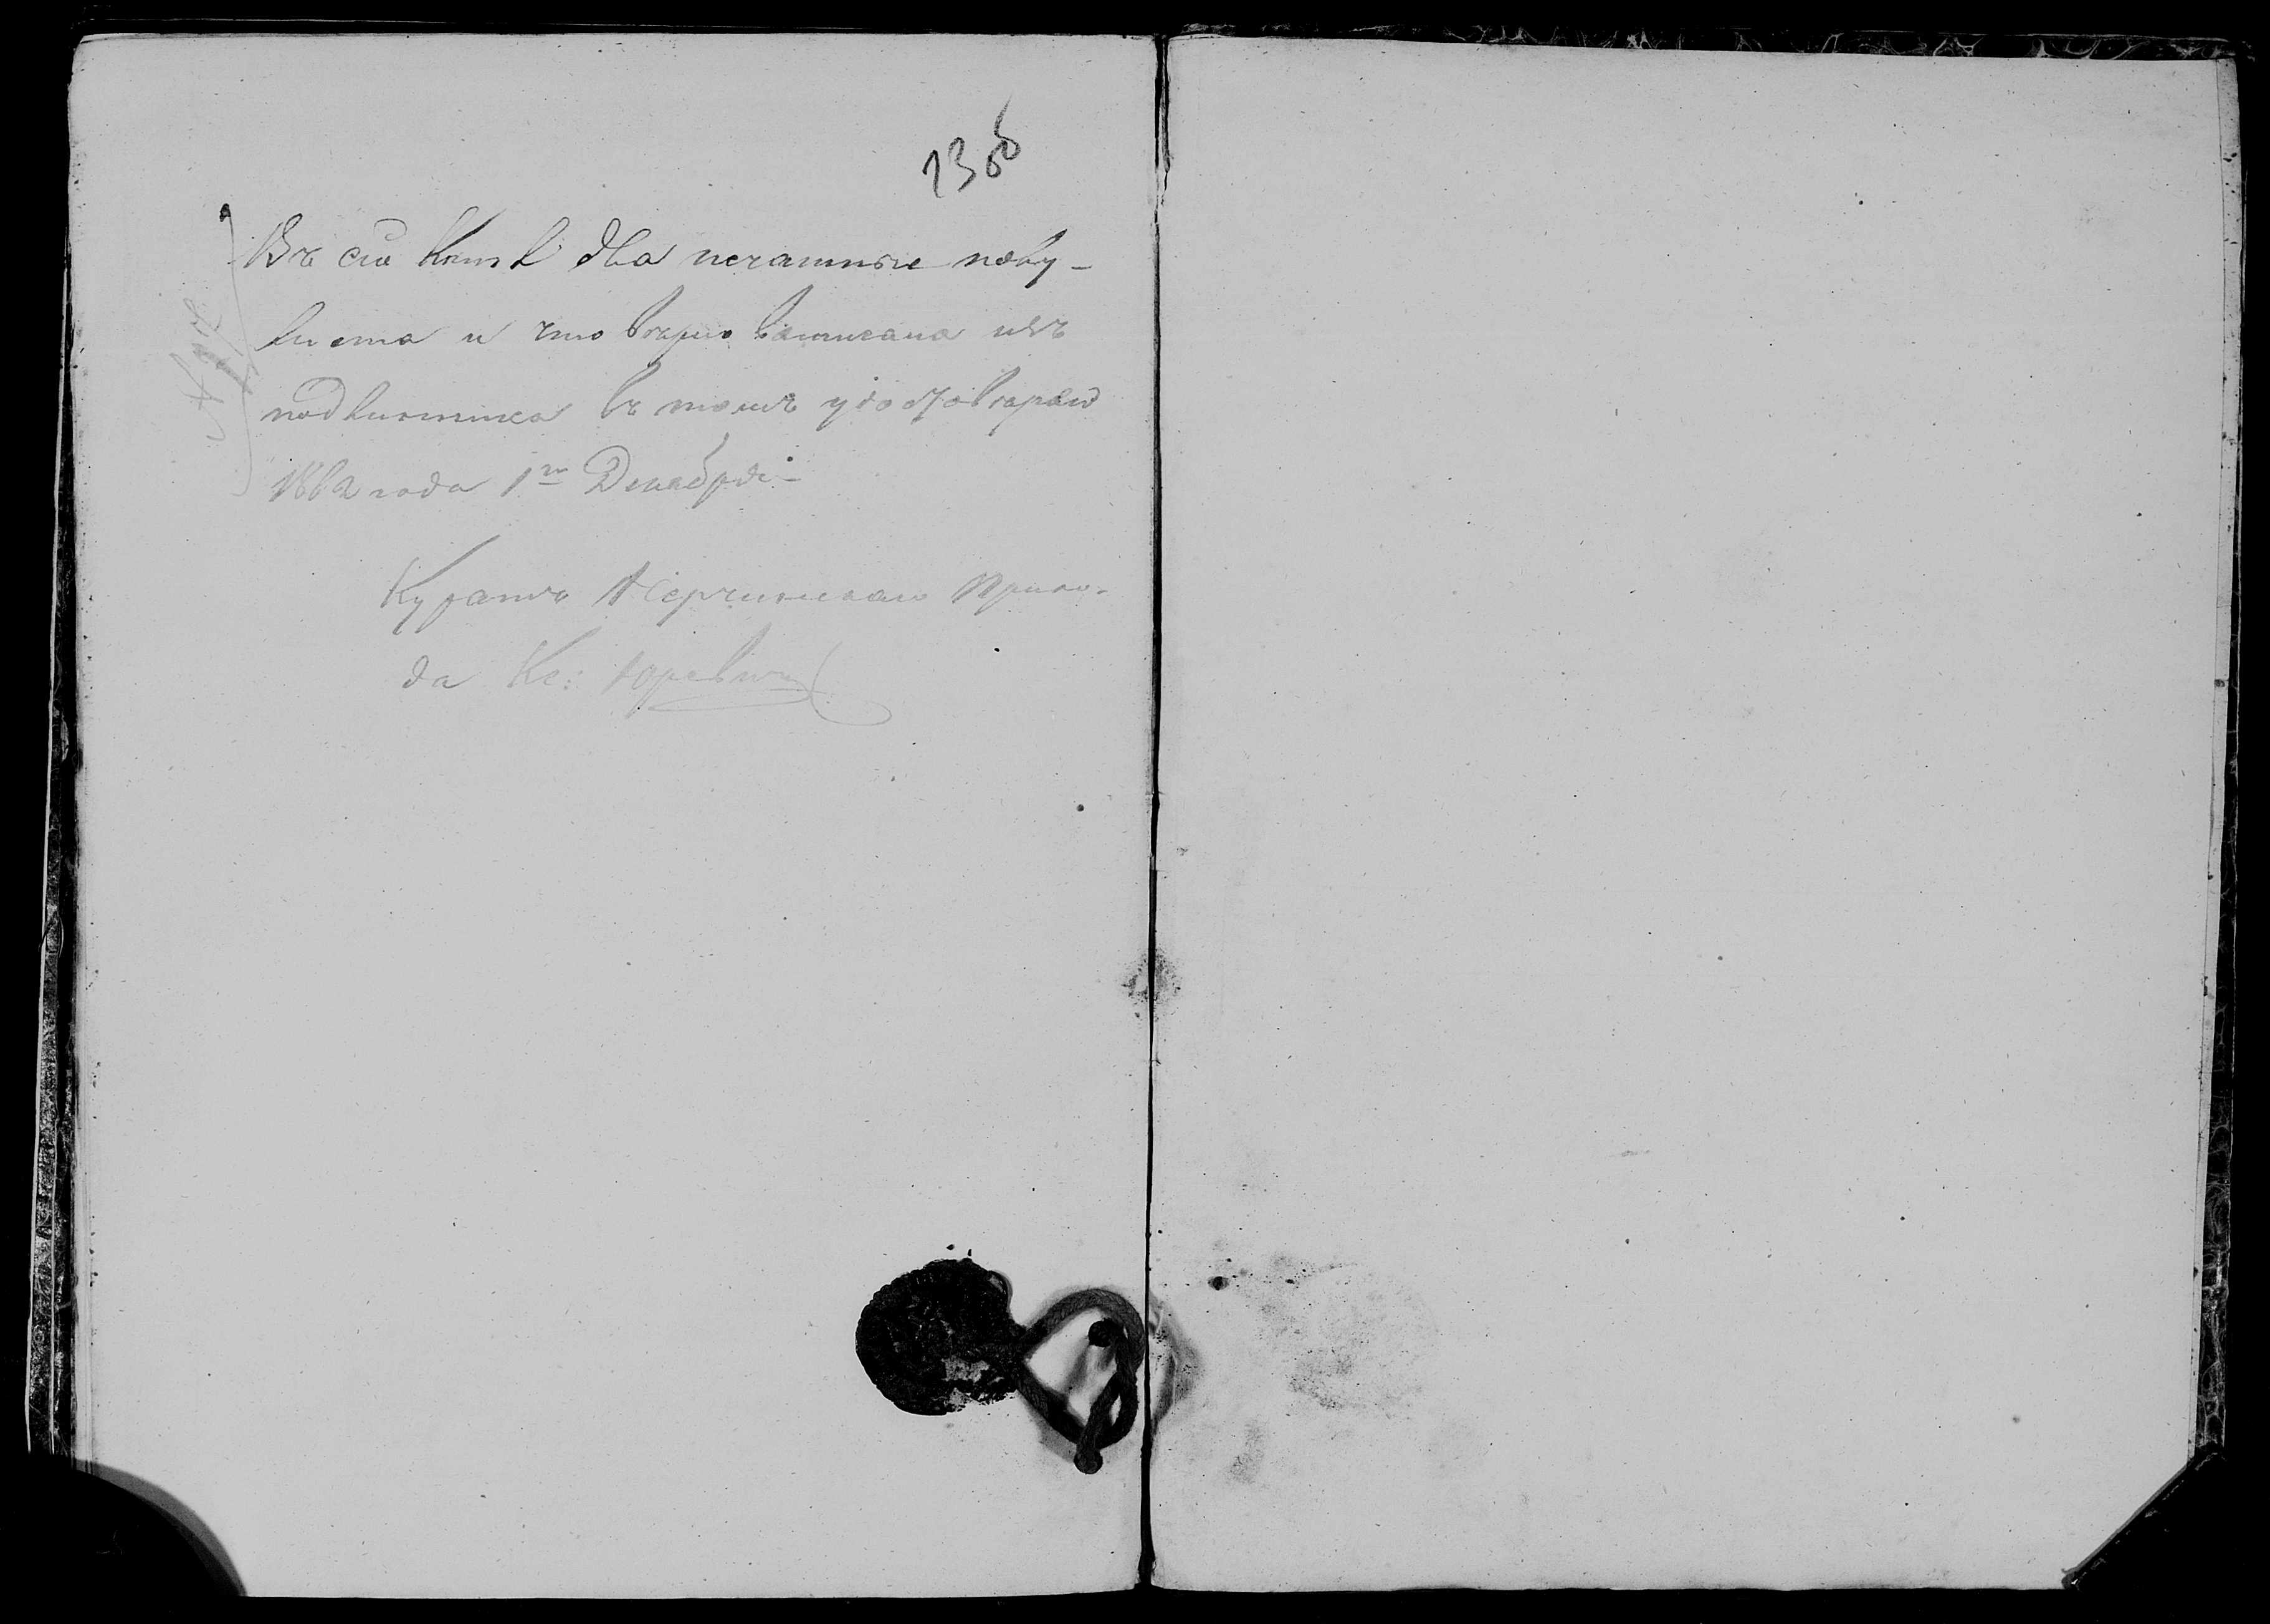 13об
Въ сей Книгѣ два печатные полу-
листа и что вѣрно вписана изъ
подлинника въ томъ удостовѣряю
1862 года 1го Декабря
Куратъ Нерчинскаго Прихо-
да Кс: Юревичъ